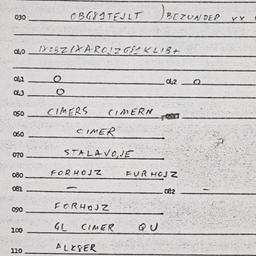 030 OBG8STEJLT )BEZUNDER
040
041 O 042 O
043 O
050 CIMERS CIMERN
060 CIMER
070 STALAVOJE
080 FORHOJZ FURHOJZ
081 — 082 —
090 FORHOJZ
100 GL CIMER QU
110